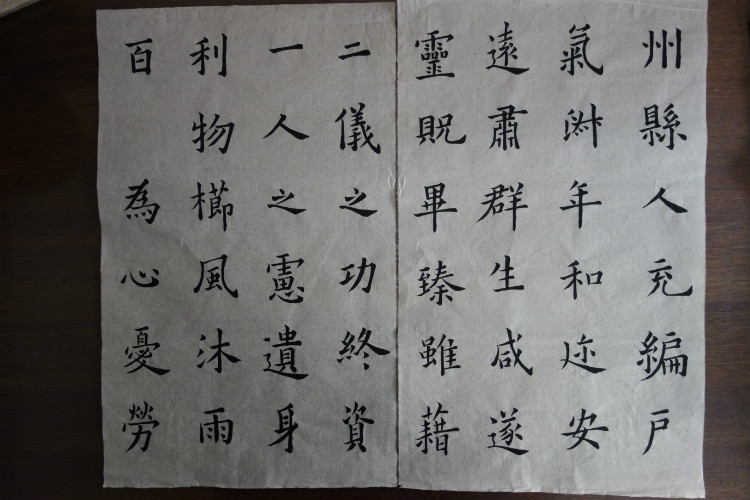 州縣人充編戶
氣淑年和迩安
遠肅群生咸遂
靈貺畢臻雖藉
二儀之功終資
一人之慮遺身
利物櫛風沐雨
百 為心憂勞